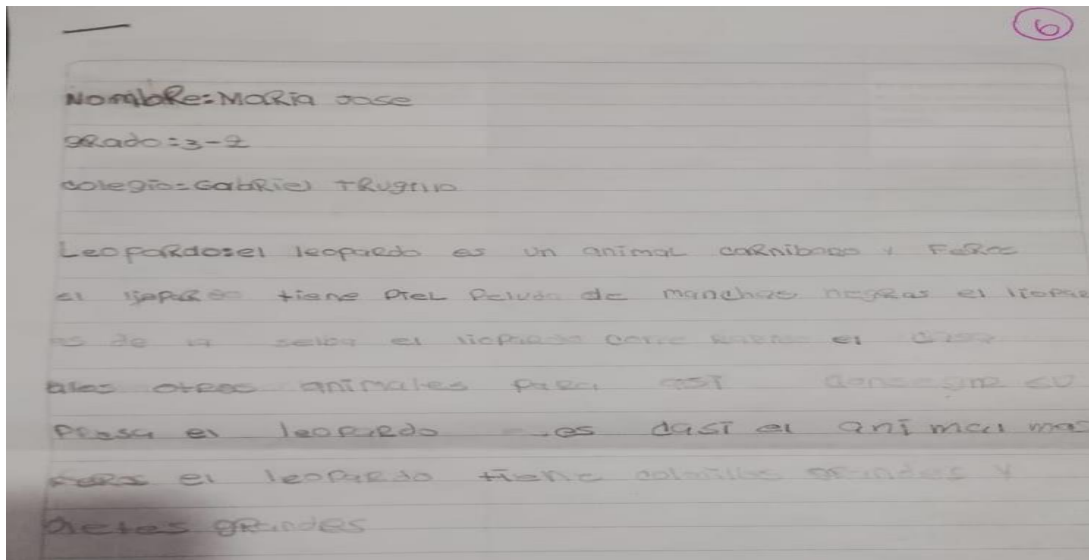 6
Nombre=Maria Jose
grado=3-2
colegio=Gabriel
Leopardo=el leopardo es un animal carniboro y Feroz
el tiene piel peluda de manchas negras el
es de la selva el corre el
alos otros animales para asi su
presa el leopardo es casi el animal mas
feros el leopardo tiene colmillos grandes y
grandes